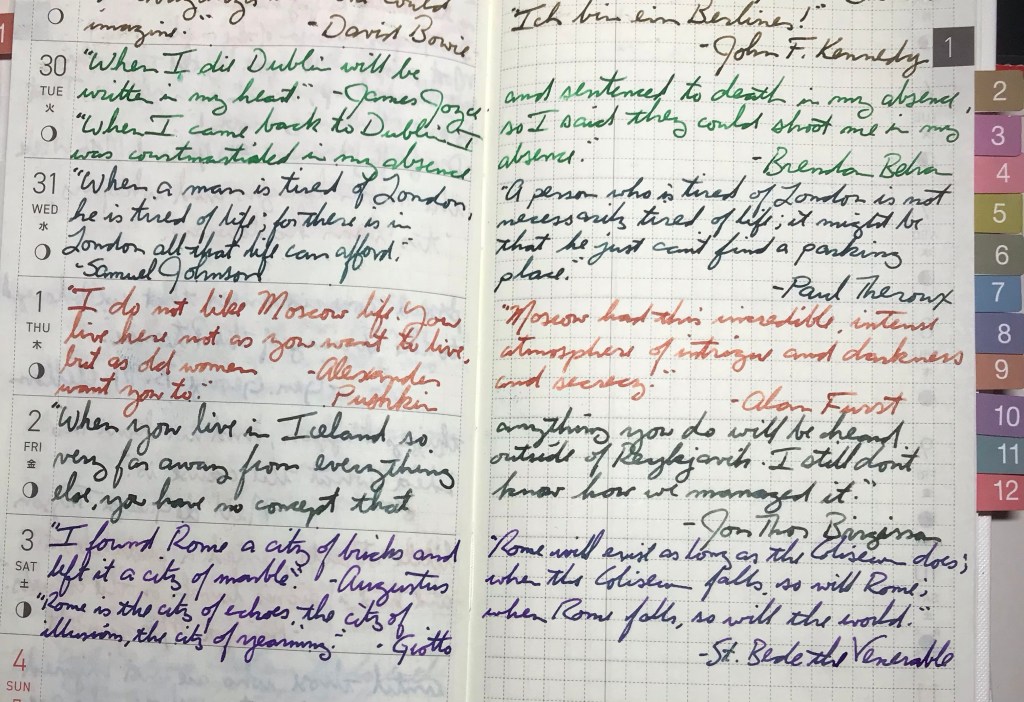 could
imagine." -David Bowie
30
TUE
火
"When I die Dublin will be
written in my heart." -James Joyce
"When I came back to Dublin I
was courtmartialed in my absence
31
WED
水
"When a man is tired of London,
he is tired of life; for there is in
London all that life can afford."
-Samuel Johnson
1
THU
木
"I do not like Moscow life. You
live here not as you want to live,
but as old women -Alexander
want you to." Pushkin
2
FRI
金
"When you live in Iceland so
very far away from everything
else, you have no concept that
3
SAT
土
"I found Rome a city of bricks and
left it a city of marble." -Augustus
"Rome is the city of echoes, the city of
illusions, the city of yearning." -Giotto
4
SUN
"Ich bin ein Berliner!"
-John F. Kennedy
and sentenced to death in my absence,
so I said they could shoot me in my
absence."
-Brendan Behan
"A person who is tired of London is not
necessarily tired of life; it might be
that he just can't find a parking
place."
-Paul Theroux
"Moscow had this incredible, intense
atmosphere of intrigue and darkness
and secrecy."
-Alan Furst
anything you do will be heard
outside of Reykjavik. I still don't
know how we managed it."
-Jon Thor Birgisson
"Rome will exist as long as the Coliseum does;
when the Coliseum falls, so will Rome;
when Rome falls, so will the world."
-St. Bede the Venerable
1
1
2
3
4
5
6
7
8
9
10
11
12